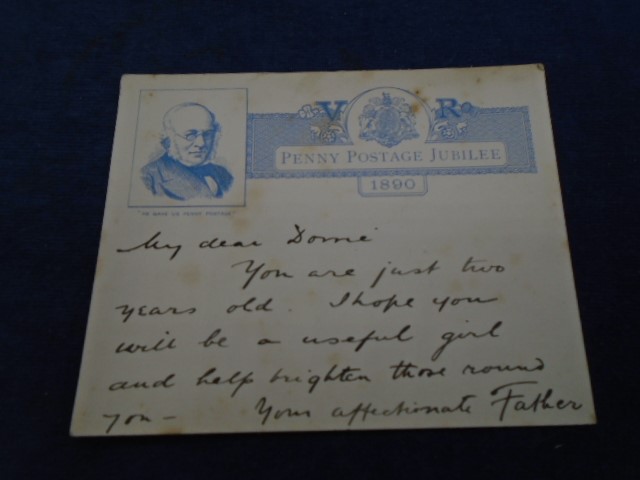 V R
PENNY POSTAGE JUBILEE
1890
My dear Dorrie
You are just two
years old. I hope you
will be a useful girl
and help brighten those round
you - Your affectionate Father